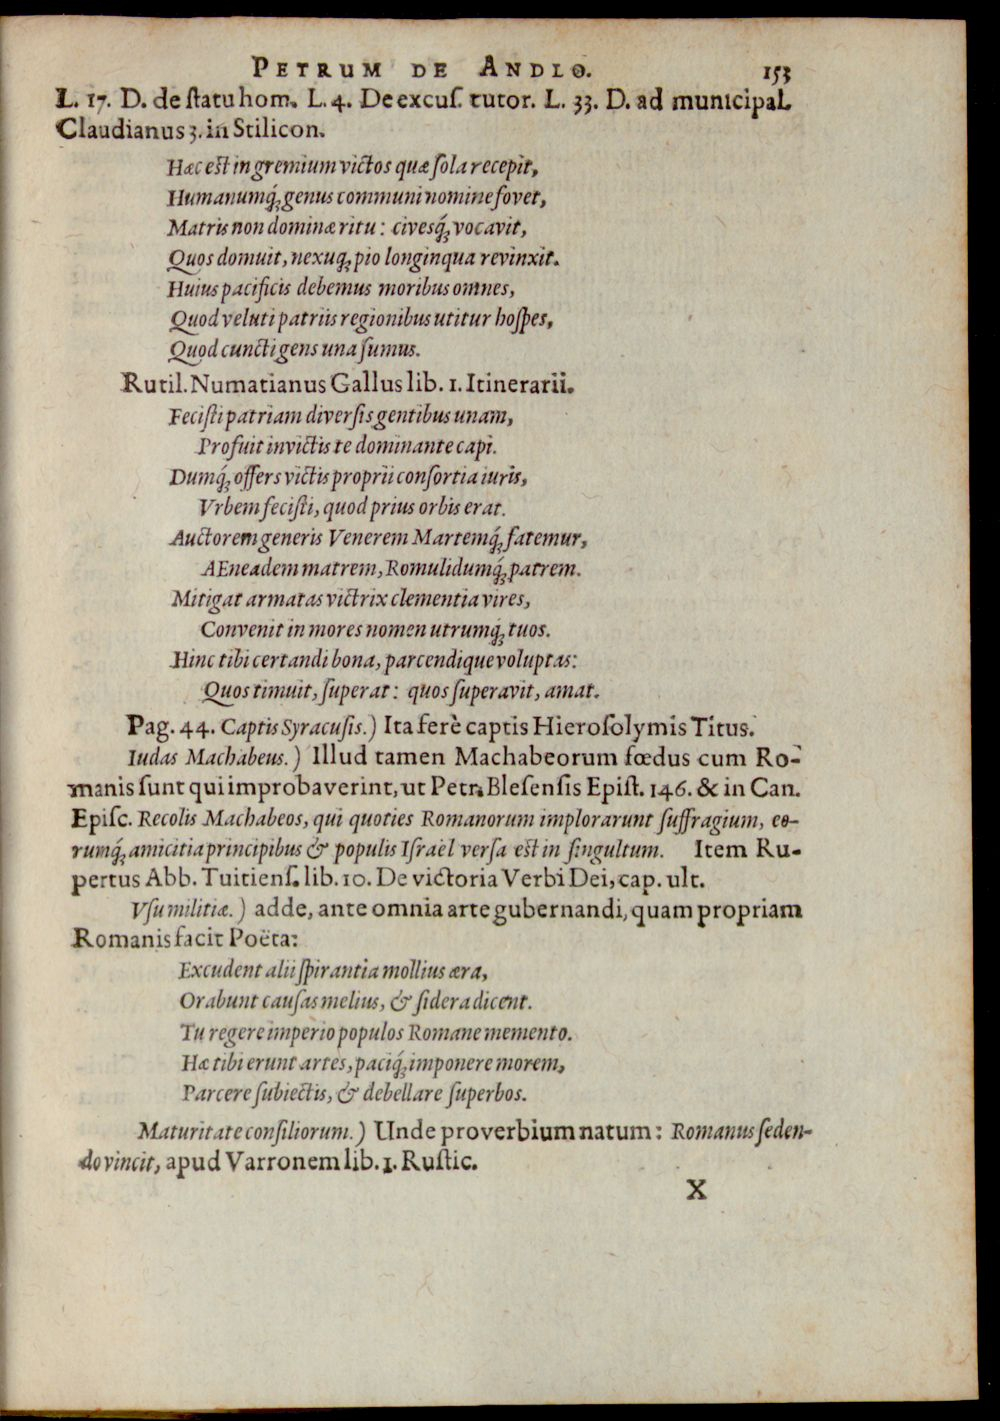 PETRUM DE ANDLO. 153
L. 17. D. de ſtatu hom. L. 4. De excuſ. tutor. L. 33. D. ad municipal.
Claudianus 3. in Stilicon.
Hæc eſt in gremium victos quæ ſola recepit,
Humanumq́ꝫ genus communi nomine fovet,
Matris non dominæ ritu: civesq́ꝫ vocavit,
Quos domuit, nexuqꝫ pio longinqua revinxit.
Huius pacificis debemus moribus omnes,
Quod veluti patriis regionibus utitur hoſpes,
Quod cuncti gens una ſumus.
Rutil. Numatianus Gallus lib. 1. Itinerarii.
Feciſti patriam diverſis gentibus unam,
Profuit invictis te dominante capi.
Dumq́ꝫ offers victis proprii conſortia iuris,
Vrbem feciſti, quod prius orbis erat.
Auctorem generis Venerem Martemq́ꝫ fatemur,
AEneadem matrem, Romulidumq́ꝫ patrem.
Mitigat armatas victrix clementia vires,
Convenit in mores nomen utrumq́ꝫ tuos.
Hinc tibi certandi bona, parcendique voluptas:
Quos timuit, ſuperat: quos ſuperavit, amat.
Pag. 44. Captis Syracuſis.) Ita ferè captis Hieroſolymis Titus.
Iudas Machabeus.) Illud tamen Machabeorum fœdus cum Ro-
manis ſunt qui improbaverint, ut Petr. Bleſenſis Epiſt. 146. & in Can.
Epiſc. Recolis Machabeos, qui quoties Romanorum implorarunt ſuffragium, eo-
rumq́ꝫ amicitia principibus & populis Iſrael verſa eſt in ſingultum. Item Ru-
pertus Abb. Tuitienſ. lib. 10. De victoria Verbi Dei, cap. ult.
Vſu militiæ.) adde, ante omnia arte gubernandi, quam propriam
Romanis facit Poëta:
Excudent alii ſpirantia mollius æra,
Orabunt cauſas melius, & ſidera dicent.
Tu regere imperio populos Romane memento.
Hæ tibi erunt artes, paciq́ꝫ imponere morem,
Parcere ſubiectis, & debellare ſuperbos.
Maturitate conſiliorum.) Unde proverbium natum: Romanus ſeden-
do vincit, apud Varronem lib. 1. Ruſtic.
X